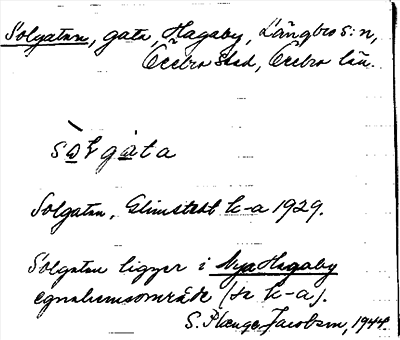 Solgatan, gata, Hagaby, Längbro s:n,
Örebro stad, Örebro län.
sòlgata
Solgatan, Glimstedt k-a 1929.
Solgatan ligger i Nya Hagaby
egnahemsområde (se k-a).
S. Plenge Jacobsen, 1944.